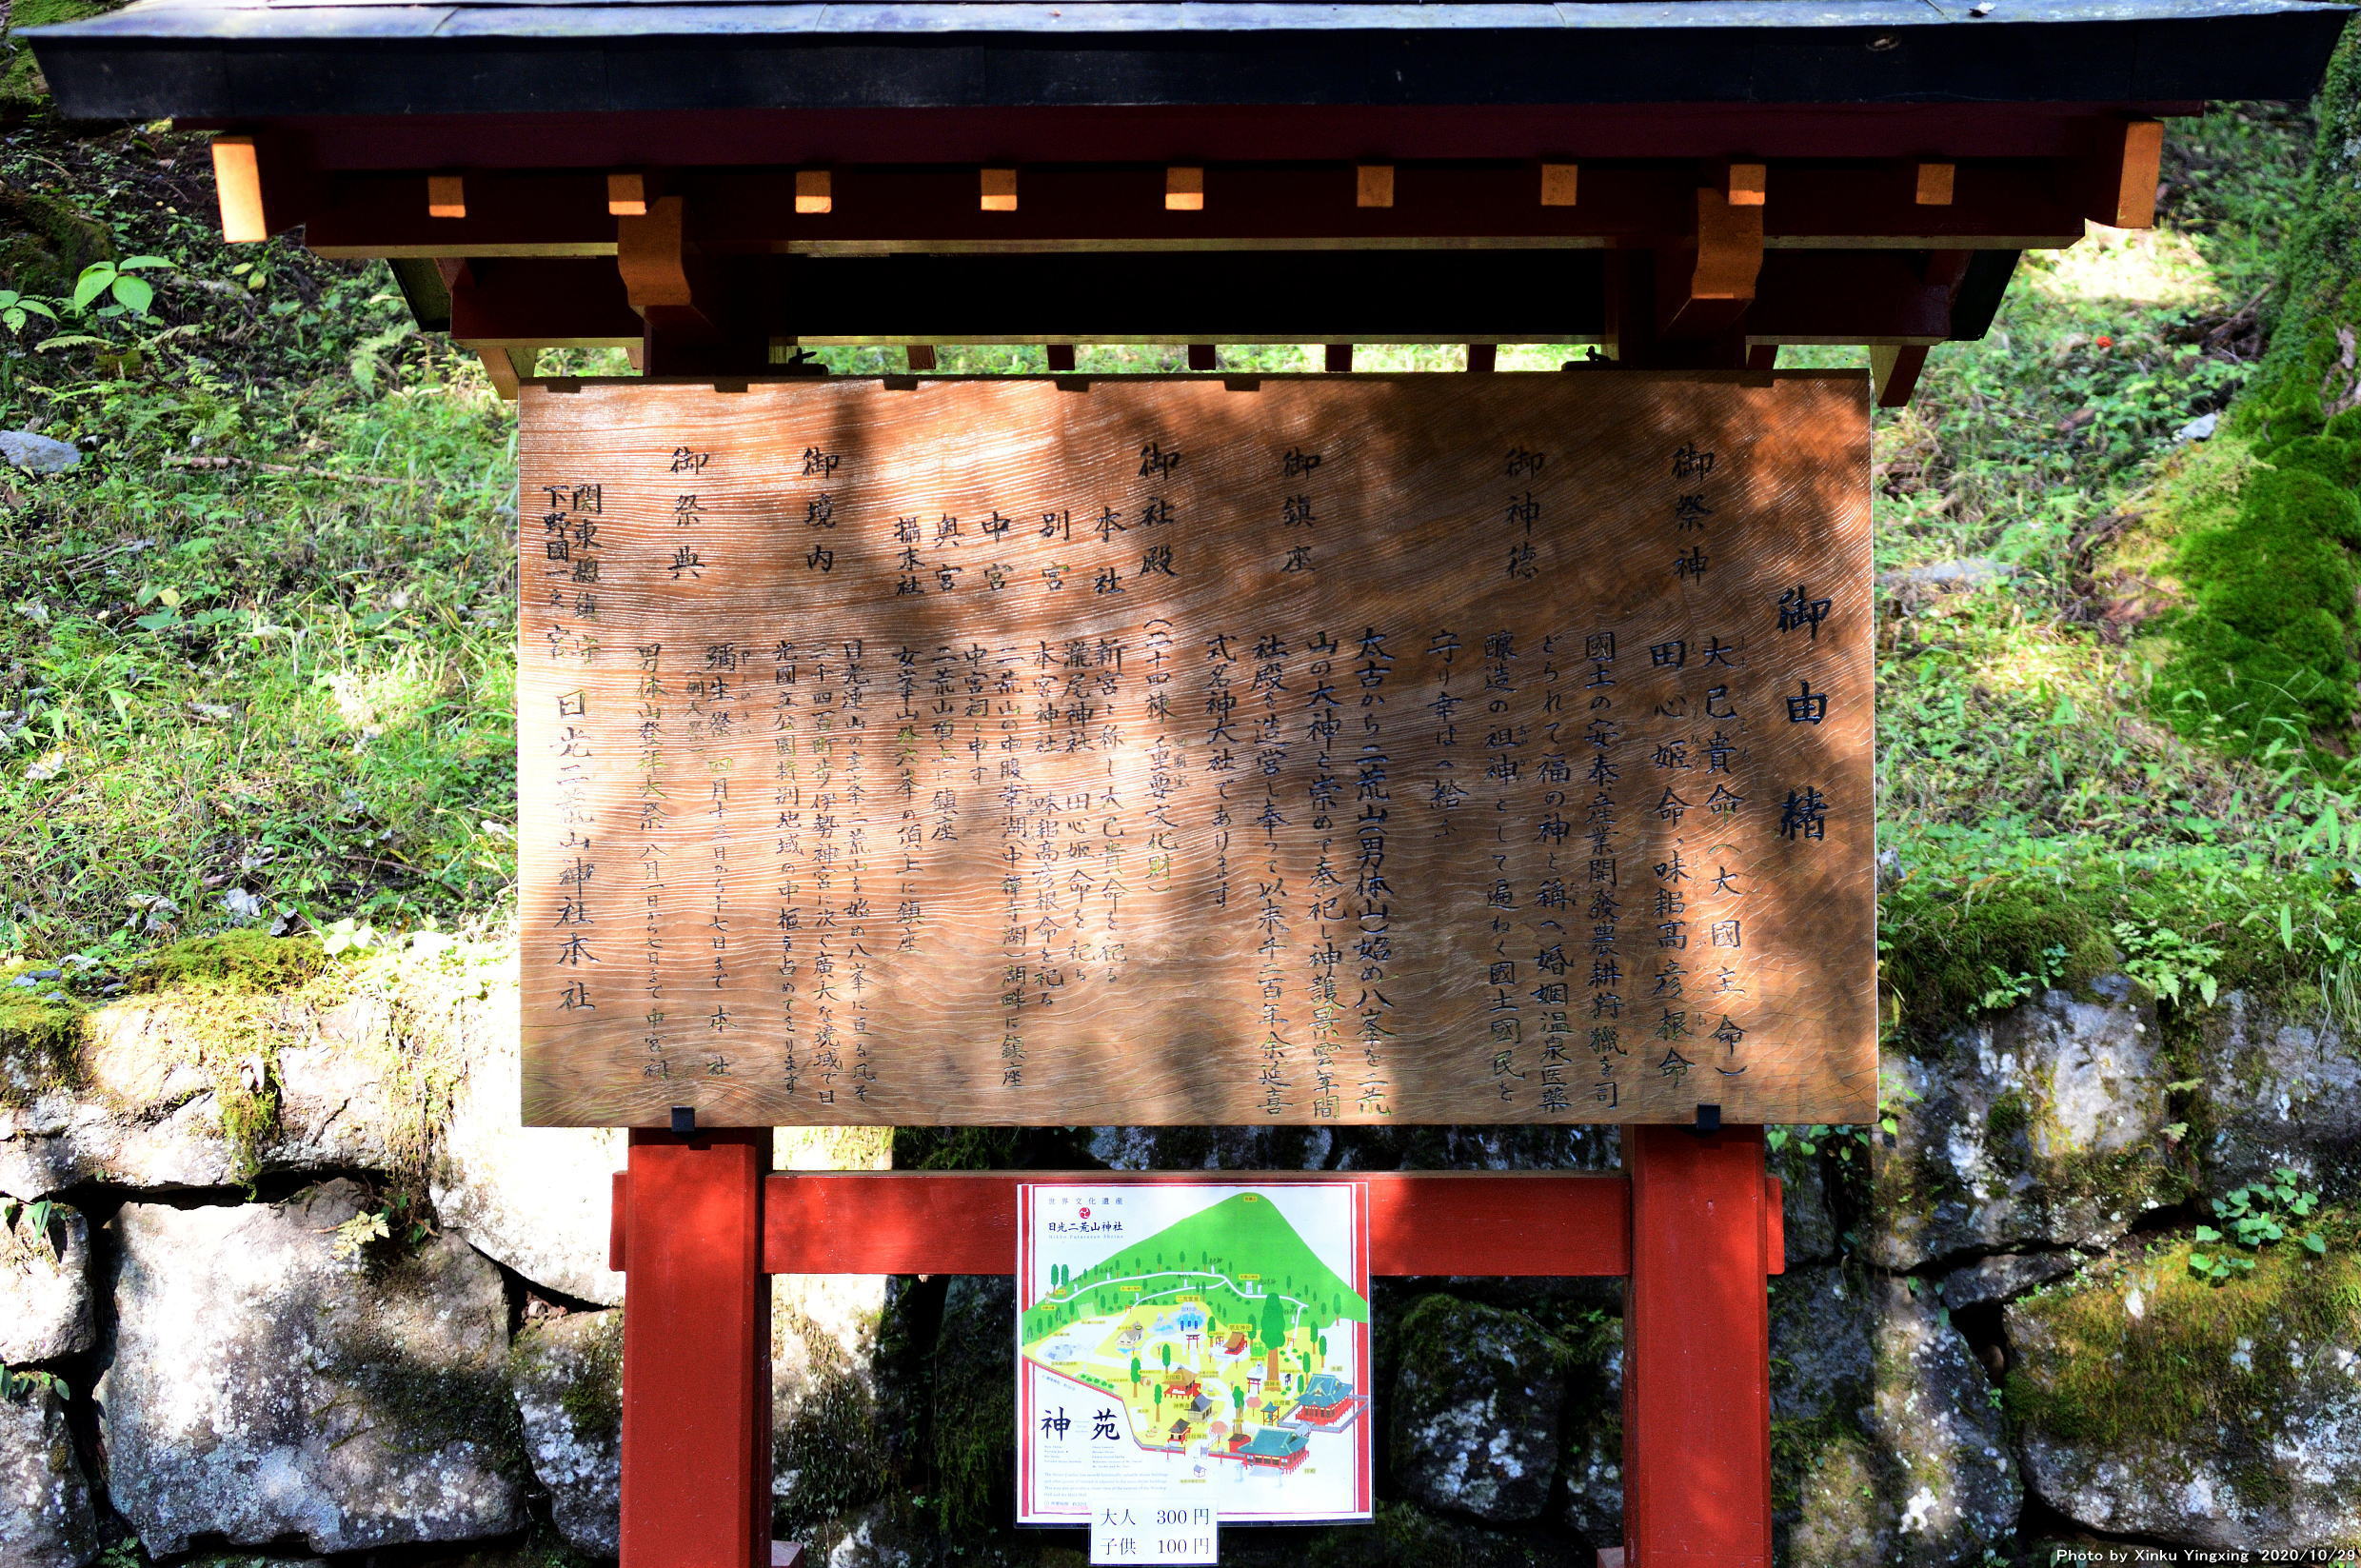 御由緒
御祭神
大己貴命(大國主命)
田心姫命、味耜高彦根命
御神徳
國土の安泰産業開發農耕狩獵を司
どられて福の神と稱へ婚姻温泉医薬
醸造の祖神として遍ねく國土國民を
守り幸はへ給ふ
御鎮座
太古から二荒山(男体山)始め八峯を二荒
山の大神と崇めて奉祀し神護景雲年間
社殿を造営し奉って以来千二百年余延喜
式名神大社であります
御社殿
(二十四棟 重要文化財)
本社
新宮と称し大己貴命を祀る
別宮
瀧尾神社 田心姫命を祀ち
本宮神社 味耜高彦根命を祀る
中宮
二荒山の中腹幸湖(中禅寺湖)湖畔に鎮座
中宮祠と申す
奥宮
二荒山頂上に鎮座
攝末社
女峯山外六峯の頂上に鎮座
御境内
日光連山の主峯二荒山を始め八峯に亘る凡そ
三千四百町歩伊勢神宮に次ぐ廣大な境域で日
光國立公園特別地域の中枢を占めてをります
御祭典
彌生祭 四月十三日から十七日まで 本社
(例大祭)
男体山登拝大祭 八月一日から七日まで 中宮祠
関東總鎮守
下野國一之宮
日光二荒山神社本社
世界文化遺産
日光二荒山神社
Nikko Futarasan Shrine
神苑
大人 300円
子供 100円
Photo by Xinku Yingxing 2020/10/29